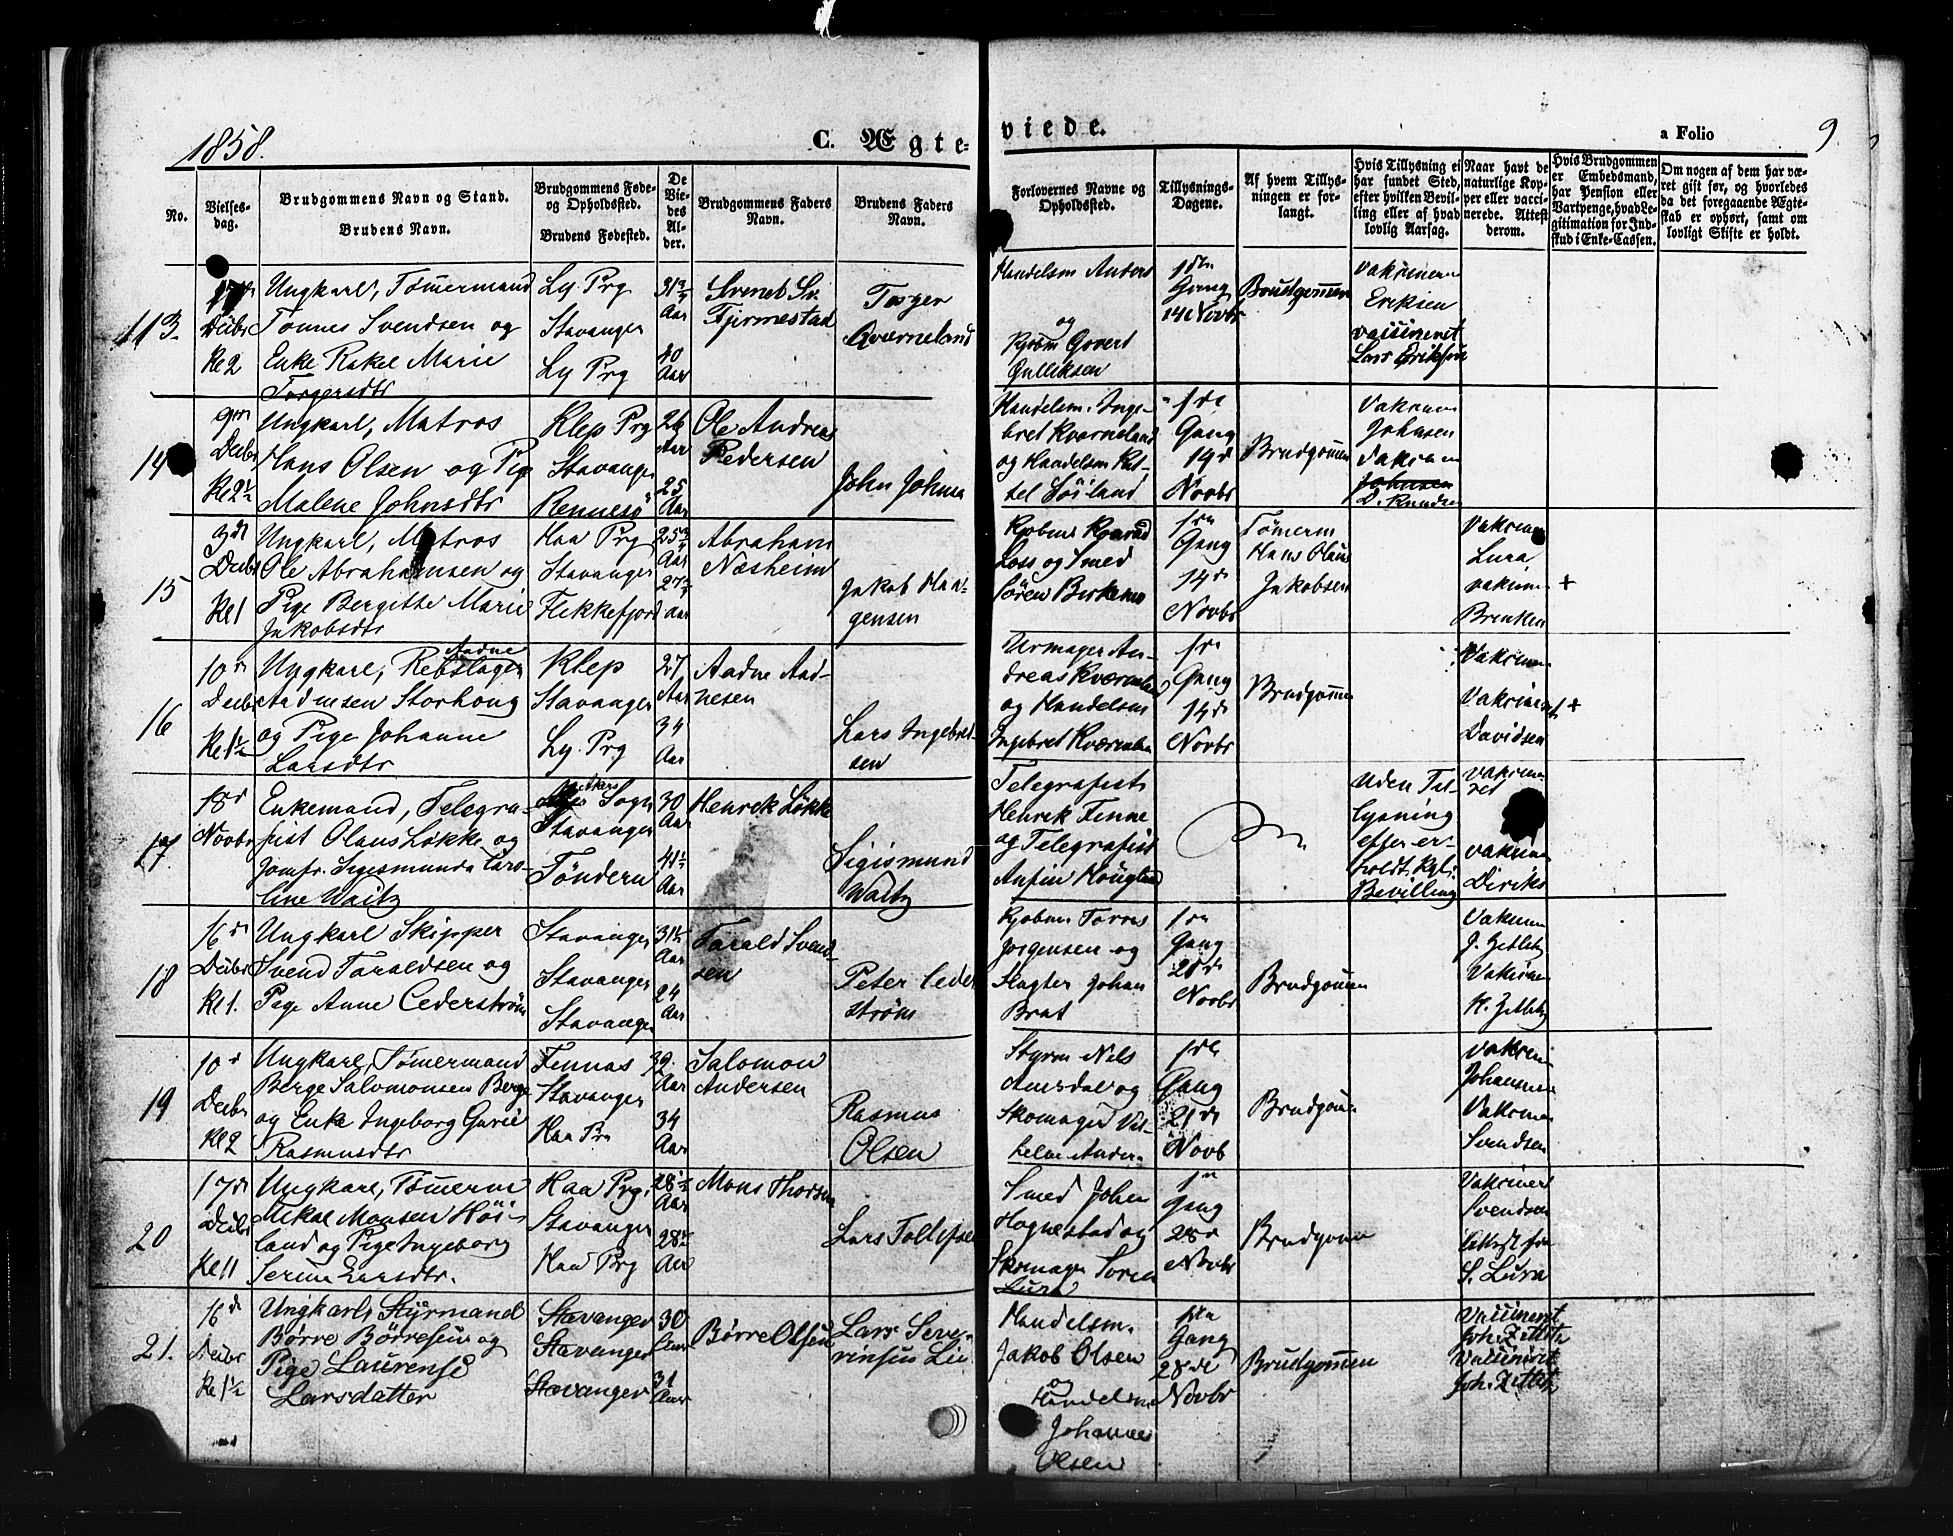 1858.
C. Ægte-
viede.
a Folio
9
No.
Vielses-
dag.
Brudgommens Navn og Stand.
Brudens Navn.
Brudgommens Føde-
og Opholdssted.
Brudens Fødested.
De
Vie-
des
Al-
der.
Brudgommens Faders
Navn.
Brudens Faders
Navn.
Forlovernes Navne og
Opholdssted.
Tillysnings-
Dagene.
Af hvem Tillys-
ningen er for-
langt.
Hvis Tillysning ei
har fundet Sted,
efter hvilken Bevil-
ling eller af hvad
lovlig Aarsag.
Naar havt de
naturlige Kop-
per eller vacci-
nerede. Attest
derom.
Hvis Brudgommen
er Embedsmand,
har Pension eller
Vartpenge, hvad Le-
gitimation for Ind-
skud i Enke-Cassen.
Om nogen af dem har væ-
ret gift før, og hvorledes
da det foregaaende Ægte-
skab er ophørt, samt om
lovligt Skifte er holdt.
13.
Decbr
Kl 2
Ungkarl, Tömermand
Tönnes Svendsen og
Enke Rakel Marie
Torgersdtr
Ly Prg
Stavanger
Ly Prg
31¾
Aar
40
Aar
Svend Sv.
Fjermestad
Torger
Qværneland
Handelsm Anders
og
Govert
Gulliksen
1ste
Gang
14 Novbr
Brudgommen
Vakcineret
Eriksen
vaccineret
Lars Eriksen
14
9de
Decbr
Kl 2½
Ungkarl, Matros
Hans Olsen og Pige
Malene Johnsdtr
Klep Prg
Stavanger
Rennesö
26
Aar
25
Aar
Ole Andreas
Pedersen
John Johnsen
Handelsm. Inge-
bret Kværneland
og Handelsm Ket-
tel Söiland
Gang
14d
Novbr
Brudgommen
Vakcinr
Johnsen
Vakcinr
Johnsen
D. Knudsen
15
3d
Decbr
Kl 1
Ungkarl, Matros
Ole Abrahamsen og
Pige Bergitte Marie
Jakobsdtr
Haa Prg
Stavanger
Flekkefjord
25¾
Aar
27½
Aar
Abraham
Næsheim
Jakob Haa-
gensen
Loss og Smed
Sören Birkenes
Gang
14d
Novbr
Tömerm
Hans Olaus
Jakobsen
Vakcinr
Lura
vakcinr +
16
10d
Decbr
Kl 1½
Ungkarl, Rebslager
Aadne
Aadnesen Storhoug
og Pige Johanne
Larsdtr
Klep
Stavanger
Ly. Prg
27
Aar
34
Aar
Aadne Aad-
nesen
Lars Ingebret-
sen
Urmager An-
dreas Kværneland
og Handelsm
Ingebret Kværnelan
Gang
14d
Novbr
Brudgommen
Vakciner
Vakcineret +
Davidsen
17
18d
Novbr
Enkemand, Telegra-
fist Olaus Lökke og
Jomfr. Sigismunda Caro-
line Waitz
Sogn
Stavanger
Töndern
30
Aar
41½
Aar
Henrik Lökke
Sigismund
Waitz
Telegrafist
Henrik Finne
og Telegrafist
Anfin Houglund
Uden Til-
lysning
efter er-
holdt Kgl.
Bevilling
Vakcine-
ret
vakcin
Diriks
18
16d
Decbr
Kl 1.
Ungkarl Skipper
Svend Taraldsen og
Pige Anne Cederström
Stavanger
Stavanger
Stavanger
31½
Aar
24
Aar
Tarald Svend-
sen
Peter Ceder
ström
Kjøbm Torres
Jörgensen og
Slagter Johan
Brat
Gang
21d
Novbr
Brudgommen
Vakcinr
J. Zetlitz
Vakciner
H. Zetlitz
19
10d
Decbr
Kl 2
Ungkarl, Tömermand
Berge Salomonsen Berge
og Enke Ingeborg Gurie
Rasmusdtr
Fennas
Stavanger
Haa Pr
32.
Aar
34
Aar
Salomon
Andersen
Rasmus
Olsen
Styrm Nels
Aarsdal og
Skomager Vil-
helm Ander-
Gang
21d
Novb
Brudgommen
Vakcinr
Johannesen
Vakciner
Svendsen
20
17d
Decbr
Kl 11
Ungkarl, Tömerm
Mikal Monsen Höi-
land og Pige Ingeborg
Serine Larsdtr.
Haa Prg.
Stavanger
Haa Prg
28½
Aar
28½
Aar
Mons Thorsen
Lars Tollefsen
Smed John
Hognestad og
Skomager Soren
Lura
Gang
28d
Novbr
Brudgommen
Vakciner
Svendsen
Attest fra
S. Lura
21.
16d
Decbr
Kl 1½
Ungkarl Styrmand
Börre Börresen og
Pige Laurense
Larsdatter
Stavanger
Stavanger
Stavanger
30
Aar
31
Aar
Börre Olsen
Lars Seve-
rinsen Lie
Handelsm.
Jakob Olsen
og
Handelsm
Johannes
Olsen
1ste
Gang
28de
Novbr
Brudgommen
Vaccineret
Joh. Zetlitz
Vaccineret
Joh. Zetlitz